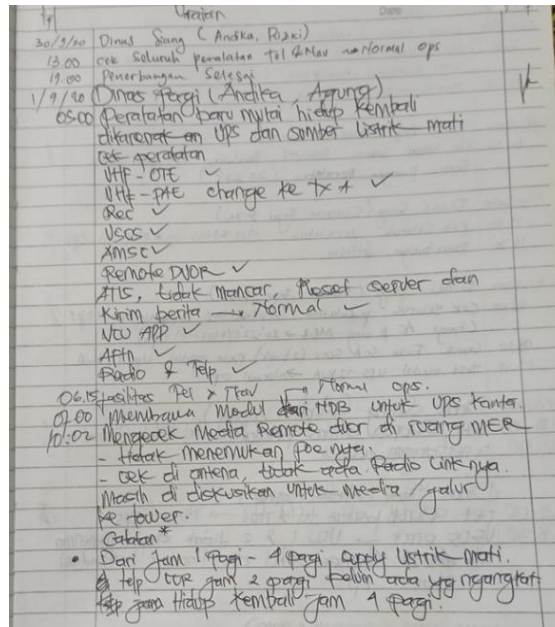 Tgl Uraian
30/9/20 Dinas Siang (Andika, Rizki)
13.00 cek seluruh peralatan tel & Nav → Normal ops
19.00 Penerbangan Selesai
1/9/20 Dinas Pagi (Andika, Agung)
05:00 Peralatan baru mulai hidup kembali
dikarenakan UPS dan sumber listrik mati
cek peralatan
VHF-OTE ✓
VHF-PAE change ke tx A ✓
Rec ✓
VSCS ✓
AMSC ✓
Remote DVOR ✓
ATIS, tidak mancar, Reset server dan
Kirim berita → Normal ✓
VCU APP ✓
AFTN ✓
Radio & Telp ✓
06.15 fasilitas Tel & Nav → Normal ops.
07.00 Membawa Modul dari HDB untuk UPS kantor.
10:02 Mengecek Media Remote dvor di ruang MER
- tidak menemukan poe nya.
- cek di antena, tidak ada Radio Linknya.
Masih di diskusikan untuk media / jalur
ke tower.
Catatan*
• Dari Jam 1 pagi - 4 pagi supply listrik mati.
telp jam 2 pagi belum ada yg ngangkat
Hidup kembali jam 4 pagi.